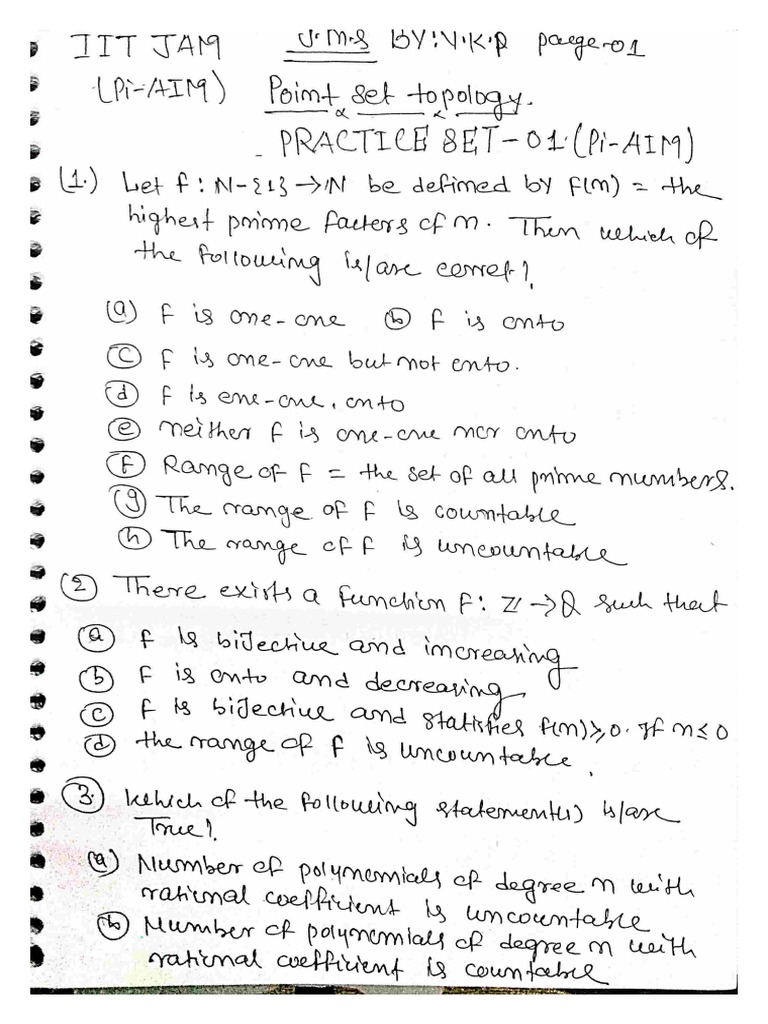 IIT JAM U.M.S BY:V.K.P paege-01
(Pi-AIM) Point set topology.
PRACTICE SET-01.(Pi-AIM)
(1.) Let f: N-{1}→N be defined by f(n) = the
highest prime factors of n. Then which of
the following is/are corret?
(a) f is one-one (b) f is onto
(c) f is one-one but not onto.
(d) f is one-one, onto
(e) neither f is one-one nor onto
(f) Range of f = the set of all prime numbers.
(g) The range of f is countable
(h) The range of f is uncountable
(2) There exists a function f: Z → Q such that
(a) f is bijective and increasing
(b) f is onto and decreasing
(c) f is bijective and statisfies f(n)≥0. If n≤0
(d) the range of f is uncountable.
(3.) Which of the following statement(s) is/are
True?
(a) Number of polynomials of degree n with
rational coefficient is uncountable
(b) Number of polynomials of degree n with
rational coefficient is countable